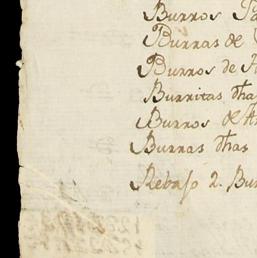 Burros Pa
Burras de
Burros de A
Burritas dhas
Burros de A
Burras dhas
Rebajo 2. Bur